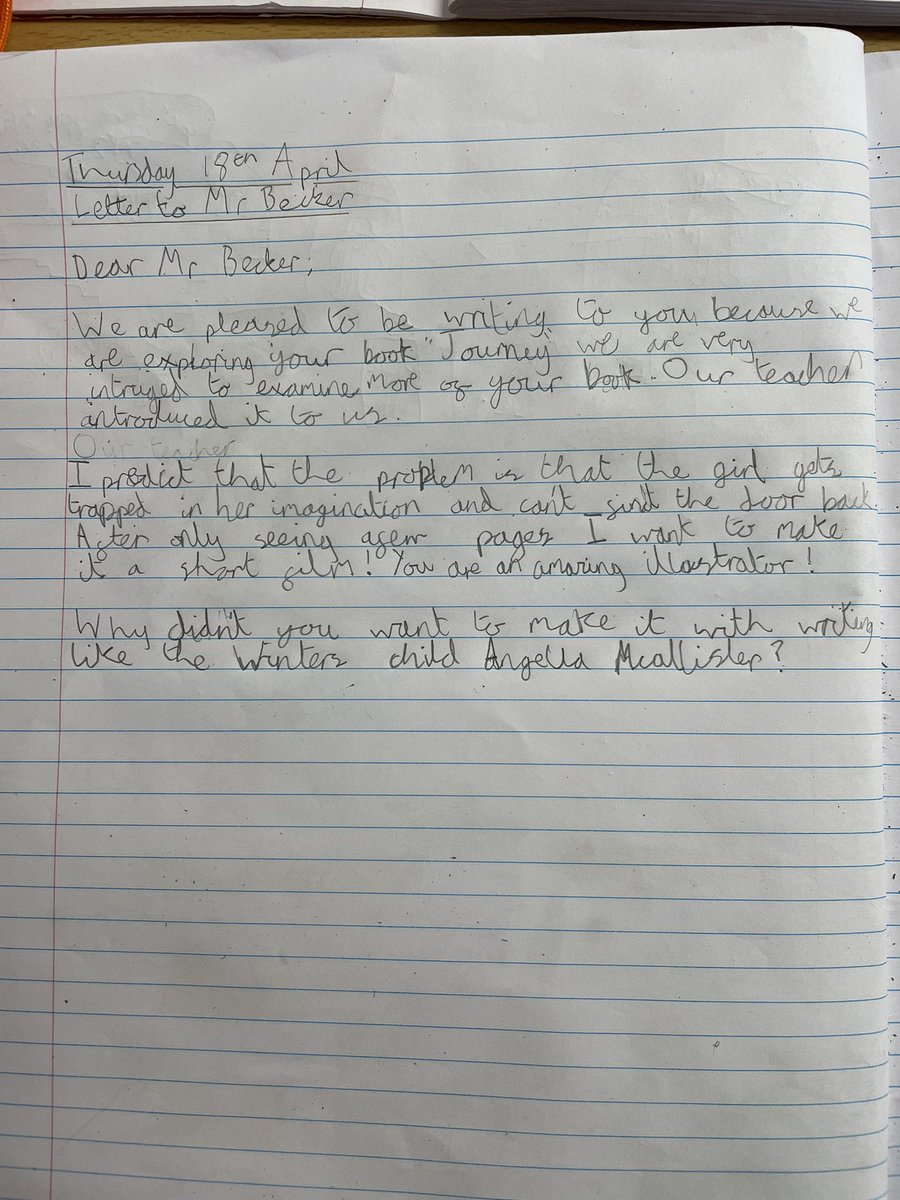 Thursday 18th April
Letter to Mr Becker
Dear Mr Becker,
We are pleased to be writing to you because we
are exploring your book "Journey" we are very
intrayed to examine more of your book. Our teacher
introduced it to us.
Our teacher
I predict that the problem is that the girl gets
trapped in her imagination and can't find the door back.
After only seeing a few pages I want to make
it a short film! You are an amazing illustrator!
Why didn't you want to make it with writing
like the Winters child Angella Mcallister?